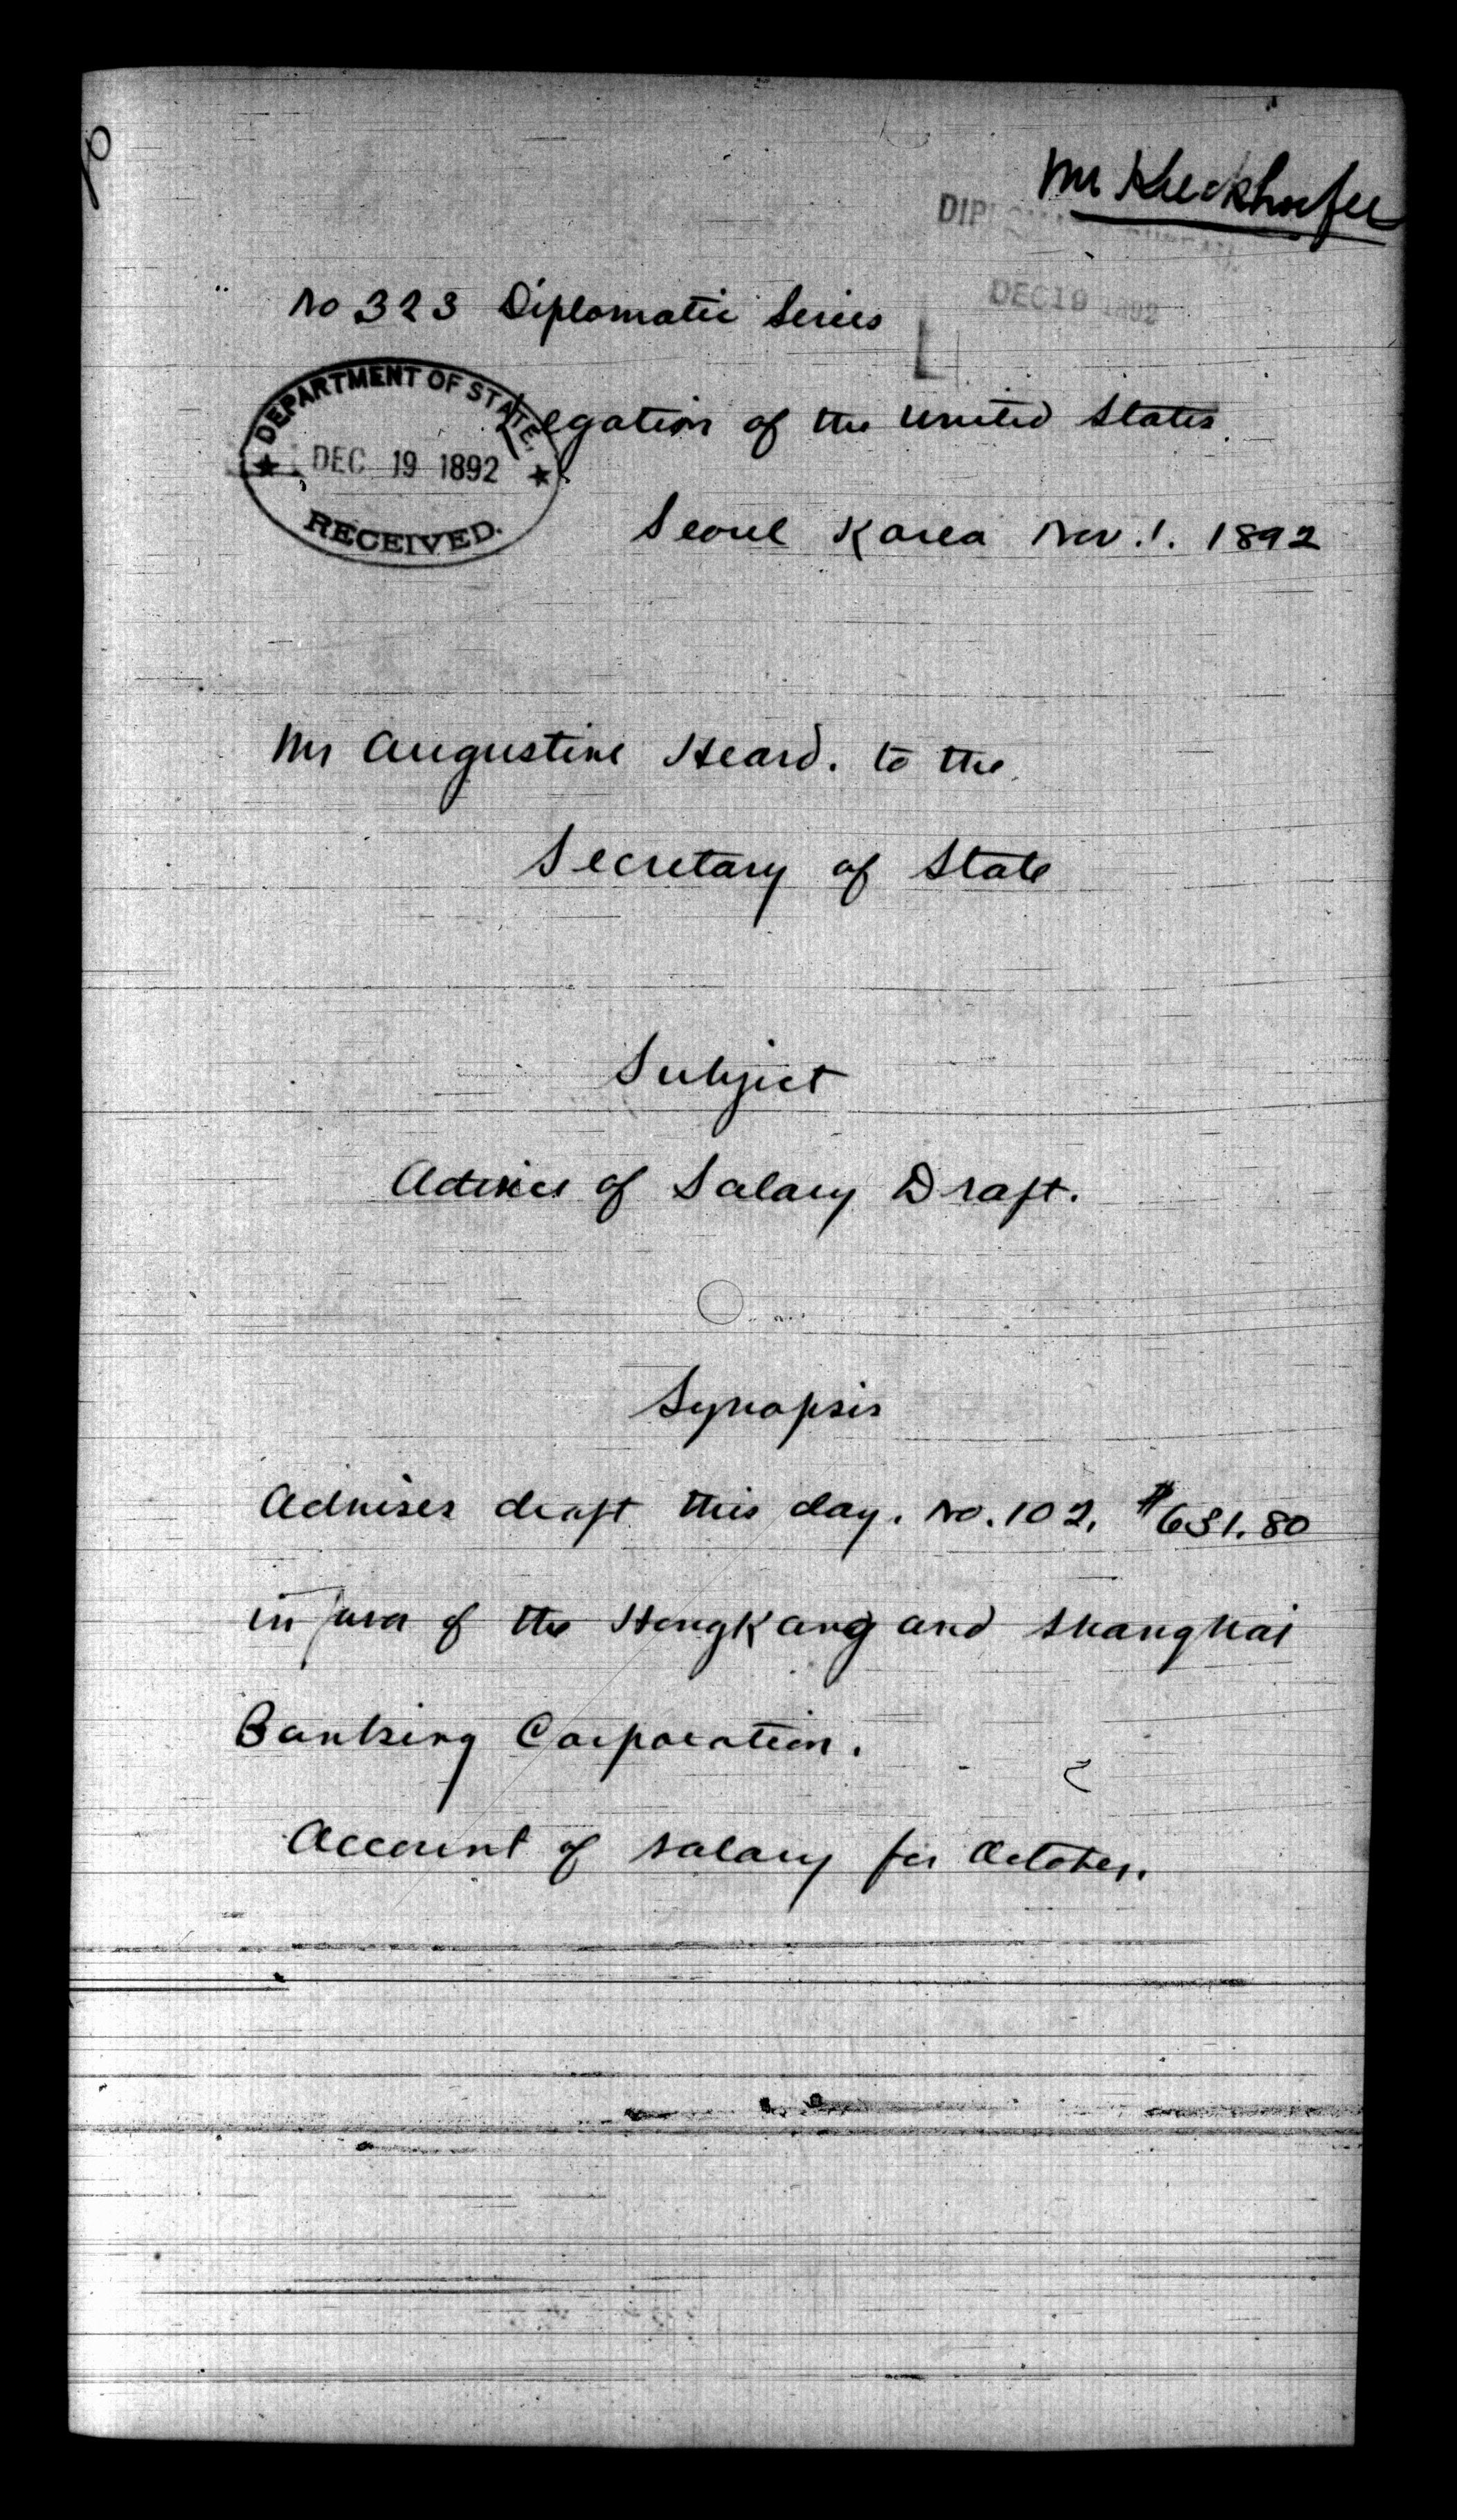 Mr Kieckhoefer
DEC 19 1892
No 323 Diplomatic Series
DEPARTMENT OF STATE,
DEC 19 1892
RECEIVED.
Legation of the United States.
Seoul Korea Nov. 1. 1892
Mr Augustine Heard. to the
Secretary of State
Subject
Advices of Salary Draft.
Synopsis
Advises draft this day. No. 102. $631.80
in favor of the HongKong and Shanghai
Banking Corporation.
Account of salary for October.